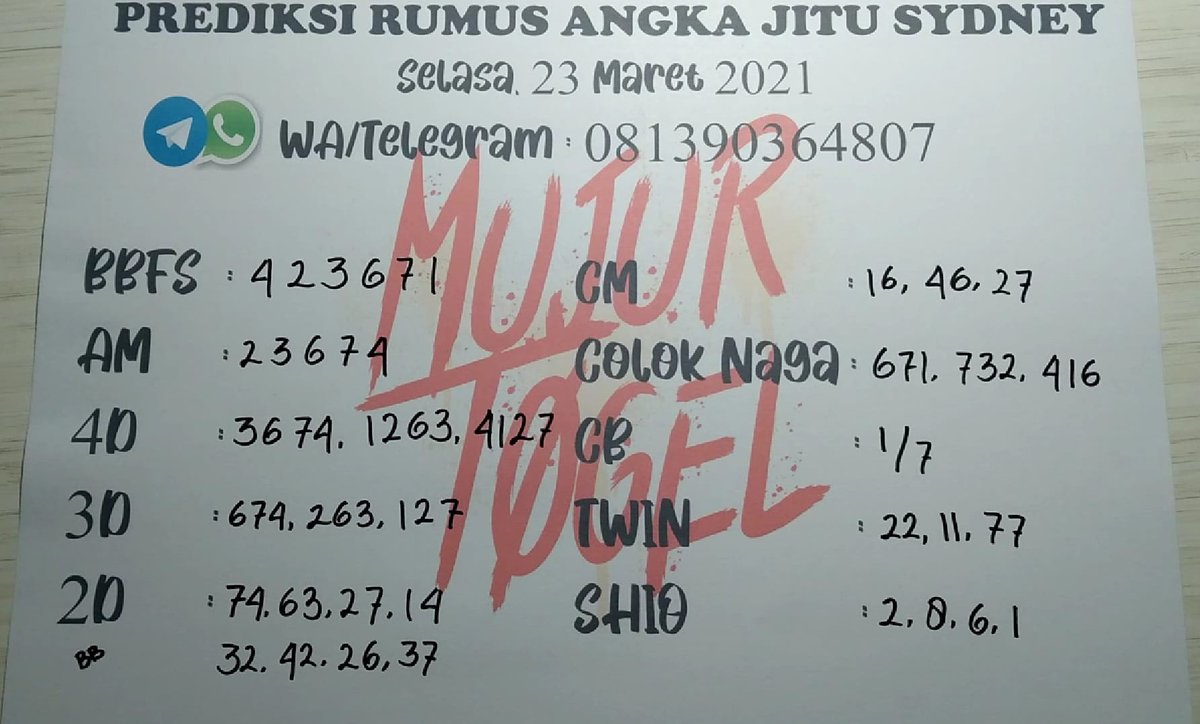 PREDIKSI RUMUS ANGKA JITU SYDNEY
Selasa, 23 Maret 2021
WA/Telegram : 081390364807
MUJUR
TOGEL
BBFS : 423671
CM : 16, 46, 27
AM : 23674
Colok Naga : 671. 732. 416
4D : 3674. 1263. 4127
CB : 1/7
3D : 674, 263, 127
TWIN : 22, 11. 77
2D : 74. 63. 27. 14
SHIO : 2, 8. 6, 1
BB 32. 42. 26, 37